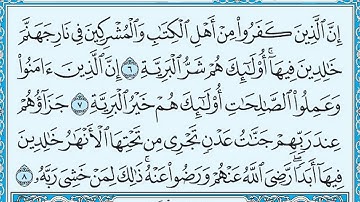 إِنَّ الَّذِينَ كَفَرُوا۟ مِنْ أَهْلِ الْكِتَٰبِ وَالْمُشْرِكِينَ فِى نَارِ جَهَنَّمَ
خَٰلِدِينَ فِيهَآ ۚ أُو۟لَٰٓئِكَ هُمْ شَرُّ الْبَرِيَّةِ ٦ إِنَّ الَّذِينَ ءَامَنُوا۟
وَعَمِلُوا۟ الصَّٰلِحَٰتِ أُو۟لَٰٓئِكَ هُمْ خَيْرُ الْبَرِيَّةِ ٧ جَزَآؤُهُمْ
عِندَ رَبِّهِمْ جَنَّٰتُ عَدْنٍ تَجْرِى مِن تَحْتِهَا الْأَنْهَٰرُ خَٰلِدِينَ
فِيهَآ أَبَدًا ۖ رَّضِىَ اللَّهُ عَنْهُمْ وَرَضُوا۟ عَنْهُ ۚ ذَٰلِكَ لِمَنْ خَشِىَ رَبَّهُۥ ٨